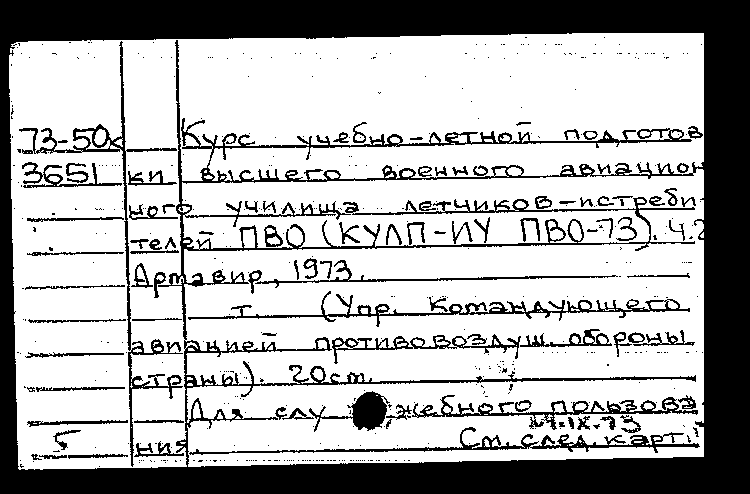 73-50к Курс учебно-летной подготов
3651 ки высшего военного авиацион
ного училища летчиков-истреби-
телей ПВО (КУЛП-ИУ ПВО-73). Ч.2
Армавир, 1973.
т. (Упр. Командующего
авиацией противовоздуш. обороны
страны). 20см.
Для служебного пользова
5 ния. 14.IX.73
См. след. карт.